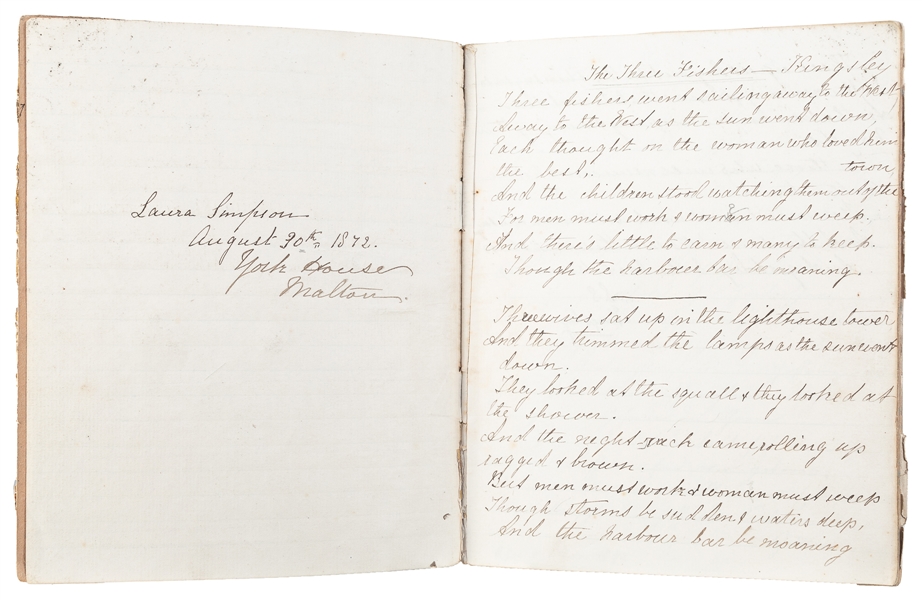 Laura Simpson
August 30th 1872.
York House
Malton.
The Three Fishers — Kingsley
Three fishers went sailing away to the West,
Away to the West as the sun went down,
Each thought on the woman who loved him
the best,.
town
And the children stood watching them out of the
For men must work & women must weep.
And there's little to earn & many to keep.
Though the harbour bar be moaning.
Three wives sat up in the lighthouse tower
And they trimmed the lamps as the sun went
down.
They looked at the squall & they looked at
the shower.
And the night-rack came rolling up
ragged & brown.
But men must work & woman must weep
Though storms be sudden & waters deep,
And the harbour bar be moaning